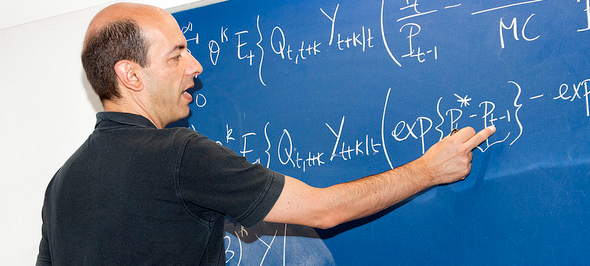 ∞ θ^k E_t { Q_{t,t+k} Y_{t+k|t} ( / P_{t-1} - / MC
0
k E_t { Q_{t,t+k} Y_{t+k|t} ( exp { P^* - P_{t-1} } - exp
) Y